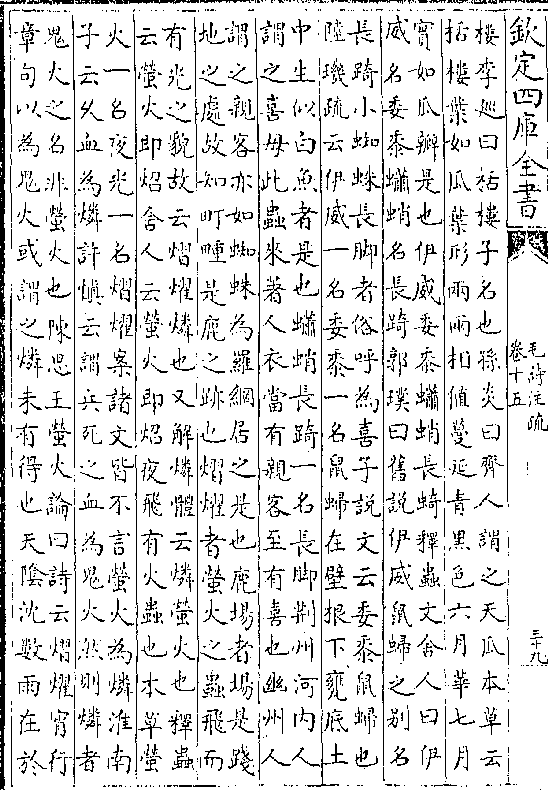 欽定四庫全書
毛詩注疏
卷十五
三十九
樓李巡曰栝樓子名也孫炎曰齊人謂之天瓜本草云
栝樓葉如瓜葉形兩兩相值蔓延青黑色六月華七月
實如瓜瓣是也伊威委黍蠨蛸長踦釋蟲文舍人曰伊
威名委黍蠨蛸名長踦郭璞曰舊說伊威鼠婦之别名
長踦小蜘蛛長脚者俗呼為喜子說文云委黍鼠婦也
陸璣疏云伊威一名委黍一名鼠婦在壁根下甕底土
中生似白魚者是也蠨蛸長踦一名長脚荆州河内人
謂之喜母此蟲來著人衣當有親客至有喜也幽州人
謂之親客亦如蜘蛛為羅網居之是也鹿場者場是踐
地之處故知町畽是鹿之跡也熠燿者螢火之蟲飛而
有光之貌故云熠燿燐也又解燐體云燐螢火也釋蟲
云螢火即炤舍人云螢火即炤夜飛有火蟲也本草螢
火一名夜光一名熠燿案諸文皆不言螢火為燐淮南
子云久血為燐許慎云謂兵死之血為鬼火然則燐者
鬼火之名非螢火也陳思王螢火論曰詩云熠燿宵行
章句以為鬼火或謂之燐未有得也天陰沈數雨在於